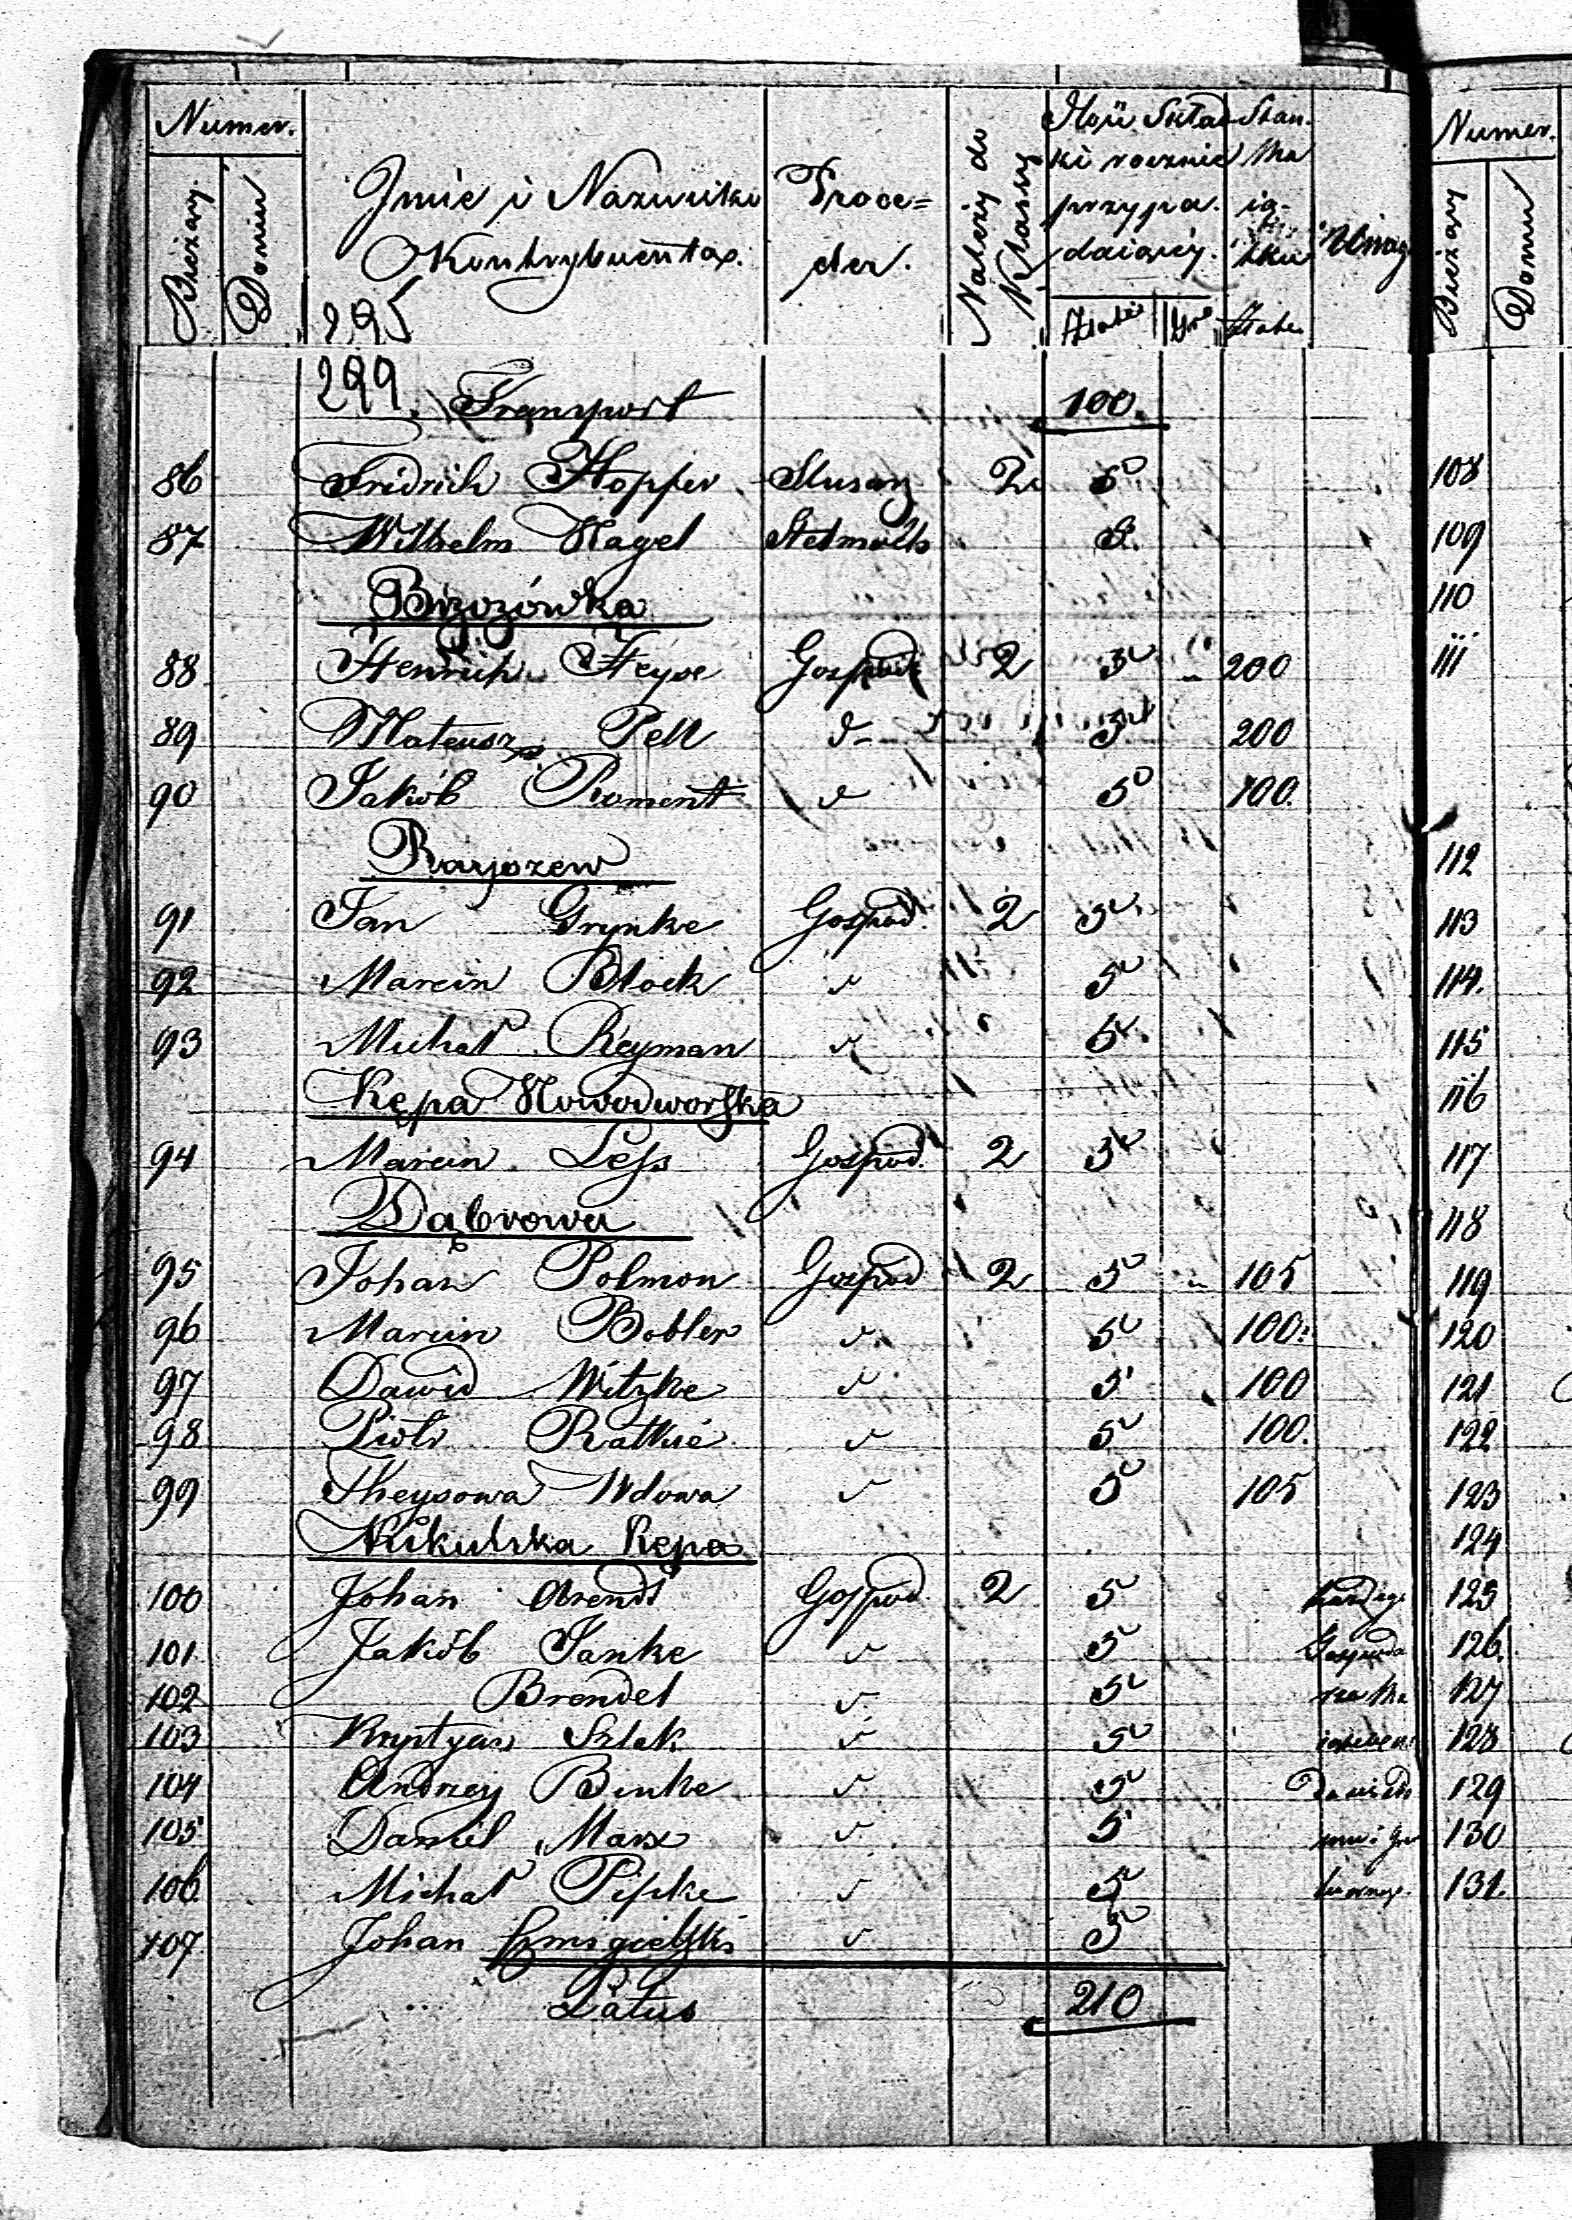 Numer.
Bieżący
Domu
Jmie i Nazwisko
Kontrybuentax.
Proce=
der.
Należy do
Klassy
Ilość Skład
ki rocznie
przypa.
daiącéy.
Złote
Gro
Stan.
Ma
ią-
tku
Złote
Uwag
295
299. Transport 100.
86 Fridrich Hopfer Slusarz 2 5
87 Wilhelm Nagel Stelmach 5
Brzozówka
88 Henrich Heyse Gospod 2 5 " 200
89 Mateusz Pell d- 5 200
90 Jakób Roment d 5 100.
Rayszew
91 Jan Grynke Gospod. 2 5
92 Marcin Block d 5
93 Michał Reyman d 5
Kępa Nowodworska
94 Marcin Less Gospod. 2 5
Dąbrowa
95 Johan Polmon Gospod 2 5 " 105
96 Marcin Bobler d 5 100.
97 Dawid Witzke d 5 100
98 Piotr Ratkie d 5 100.
99 Theysowa Wdowa d 5 105
Kikulska Kępa
100 Johan Arendt Gospod. 2 5
101 Jakób Janke d 5
102 Brendel d 5
103 Krystyan Szlak d 5
104 Andrzey Binke d 5
105 Daniel Marx d 5
106 Michał Pipke d 5
107 Johan Szmigielski d 5
Latus 210
Numer.
Bieżący
Domu
108
109
110
111
112
113
114.
115
116
117
118
119
120
121
122
123
124
125
126.
127
128
129
130
131.